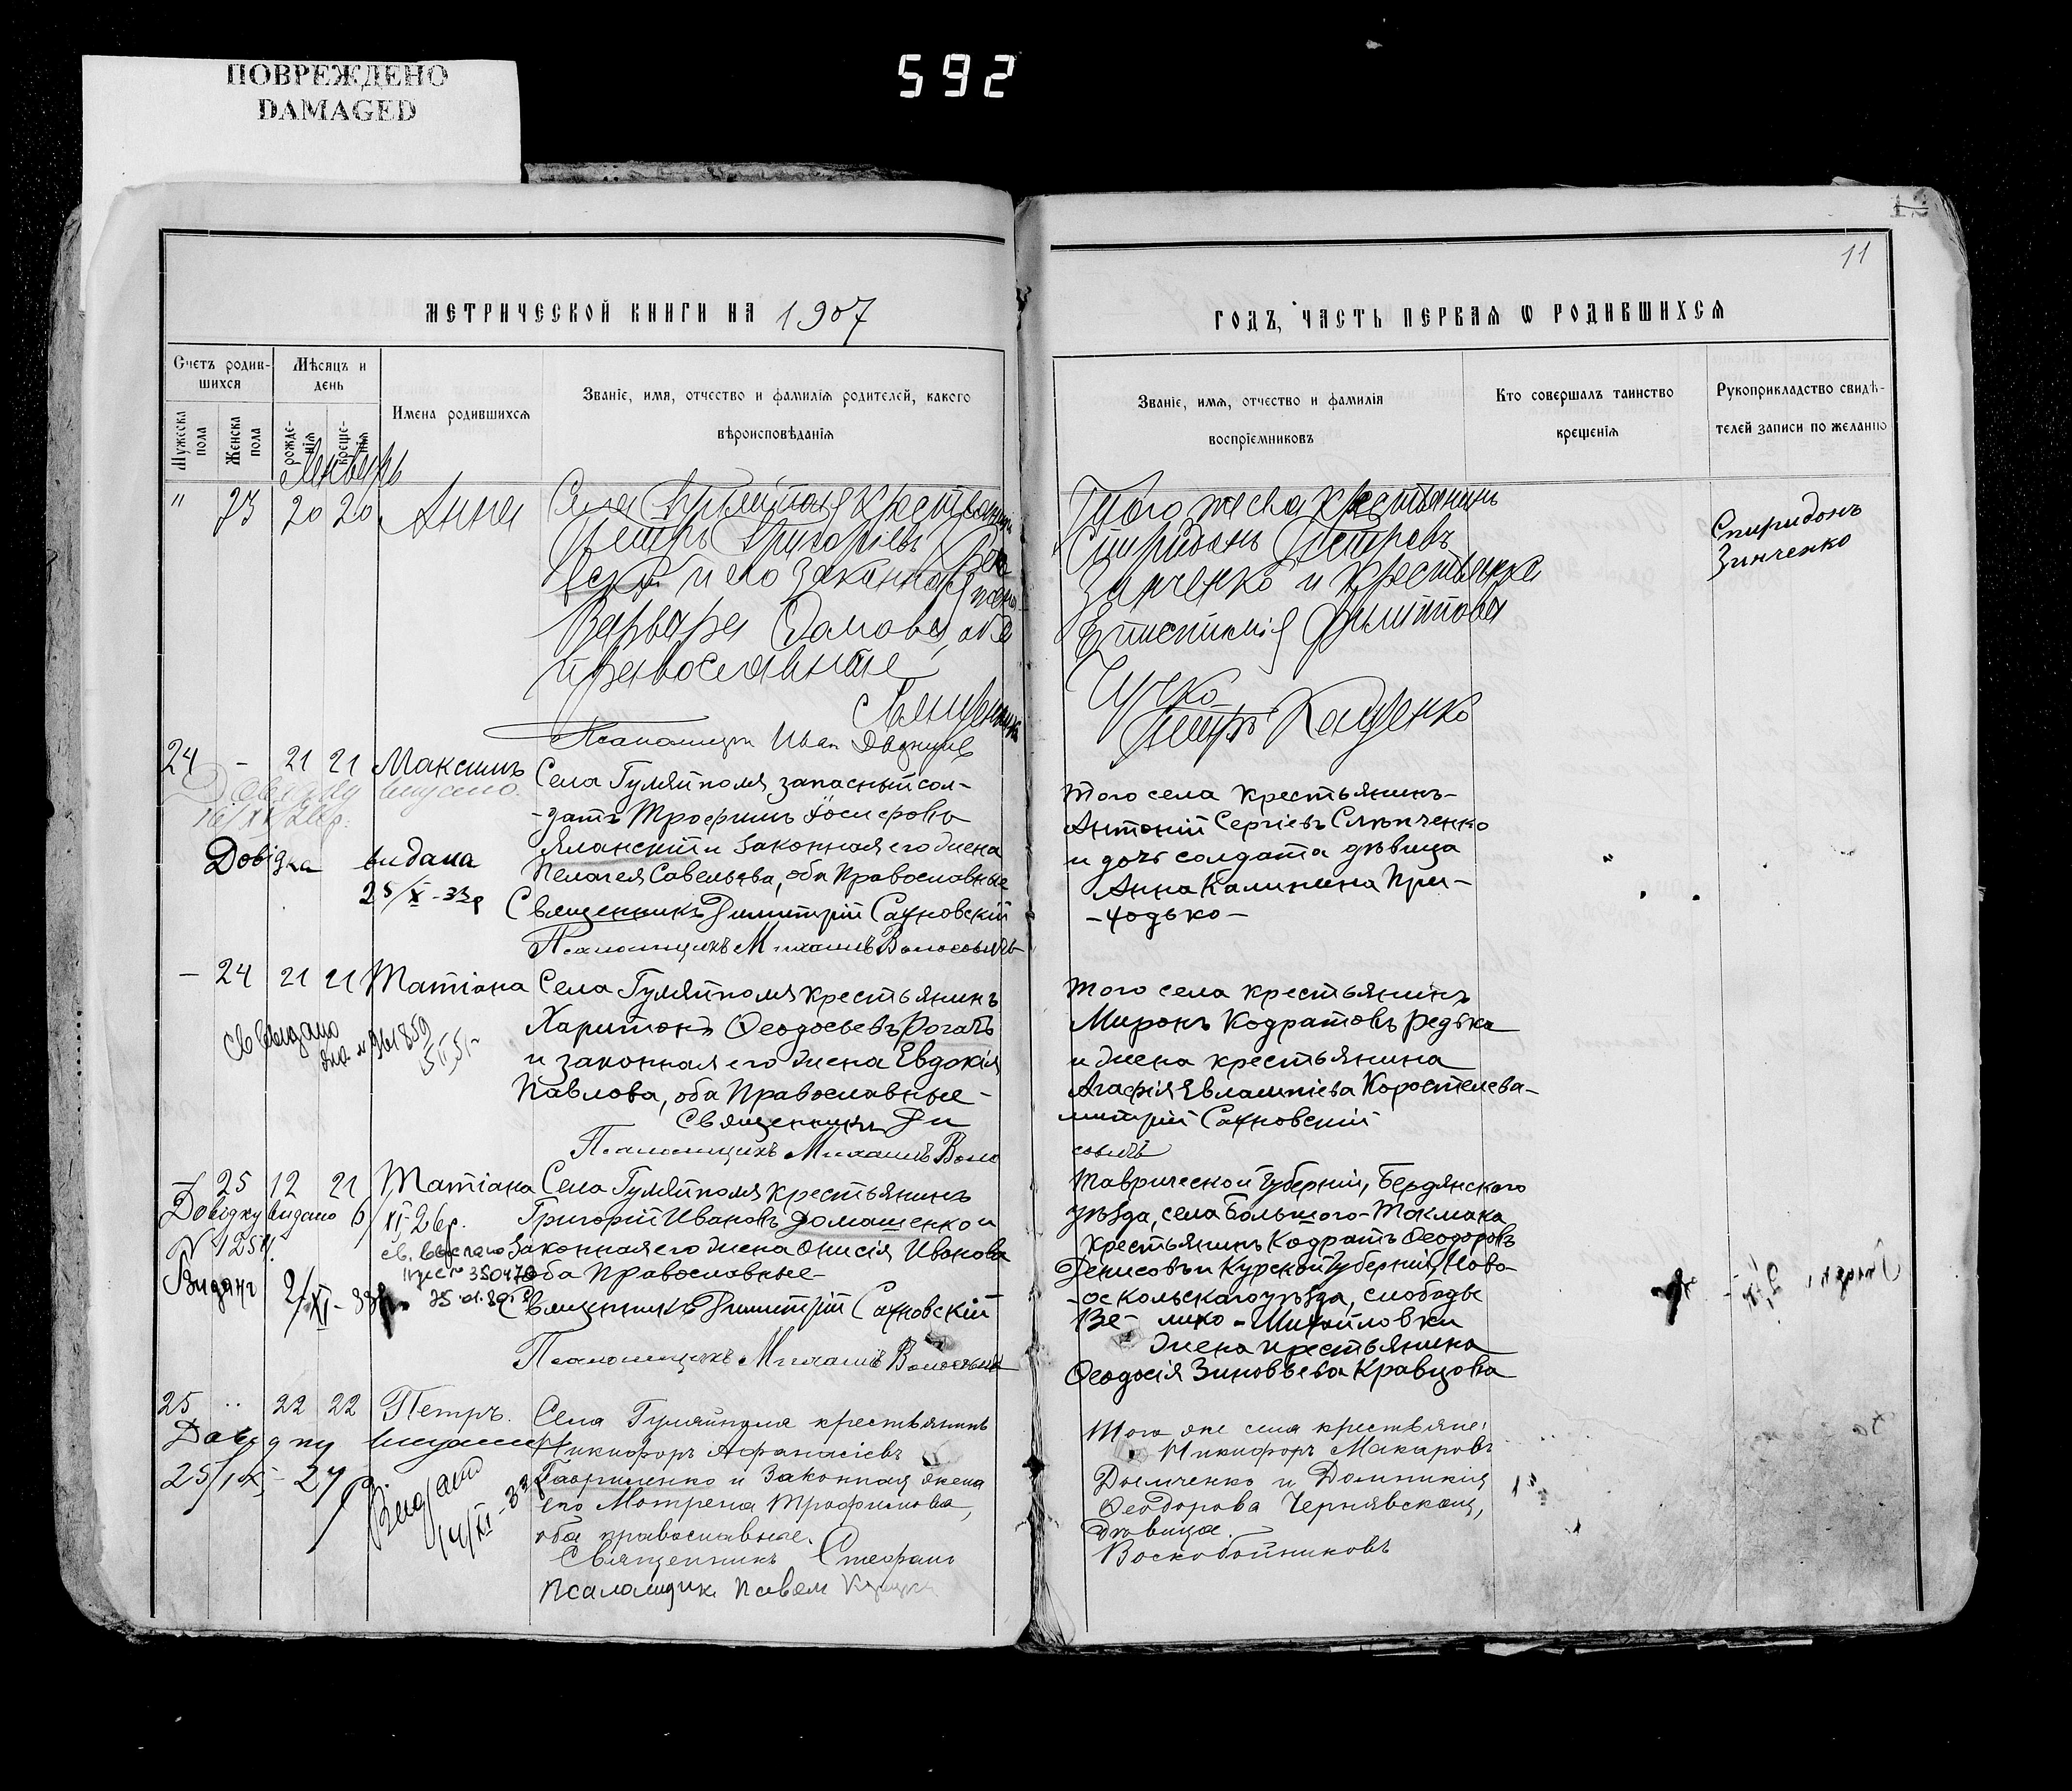 ПОВРЕЖДЕНО
DAMAGED
592
11
МЕТРИЧЕСКОЙ КНИГИ НА 1907
ГОДЪ, ЧАСТЬ ПЕРВАЯ Ѡ РОДИВШИХСЯ
Счетъ родив-
шихся
Мужеска пола
Женска пола
Мѣсяцъ и
день
рожде-
нія
креще-
нія
Имена родившихся
Званіе, имя, отчество и фамилія родителей, какого
вѣроисповѣданія
Званіе, имя, отчество и фамилія
воспріемниковъ
Кто совершалъ таинство
крещенія
Рукоприкладство свидѣ-
телей записи по желанію
Январь
" 23 20 20 Анна
Села Гуляйполя крестьянинъ
Петръ Григорьевъ
и его законная жена
Варвара
православные
Священникъ
Петръ Кащенко
Псаломщик Иван
Того же села крестьянинъ
Спиридонъ Петровъ
Зинченко и крестьянка
Епистимія Филиппова
Спиридонъ
Зинченко
24 - 21 21 Максимъ
Довідка видана
25/X - 33р
Села Гуляйполя, запасный сол-
-датъ Трофимъ Іосифовъ
Яланскій и законная его жена
Пелагея Савельева, оба Православные
Священникъ Димитрій Сахновскій
Псаломщикъ Михаилъ Волосовичъ
того села крестьянинъ-
Антоній Сергіевъ Слѣпченко
и дочь солдата дѣвица
Анна Калинина При-
-ходько-
- 24 21 21 Татіана
Села Гуляйполя крестьянинъ
Харитонъ Ѳеодосьевъ Рогачъ
и законная его жена Евдокія
Павлова, оба Православные-
Священникъ Ди
митрій Сахновскій
Псаломщикъ Михаилъ Воло
совичъ
св выдано
№ 961859
того села крестьянинъ
Миронъ Кодратовъ Редька
и жена крестьянина
Агафія Евлампіева Коростелева-
- 25 12 21 Татіана
Довідку видано 6/XI-26р.
N 1254
Видано 2/XI-33р.
Села Гуляйполя крестьянинъ
Григорій Ивановъ Домашенко и
законная его жена Онисія Иванова
оба Православные-
Священникъ Димитрій Сахновскій
Псаломщикъ Михаилъ Волосовичъ
Таврической губерніи, Бердянского
уѣзда, села Большого-Токмака
крестьянинъ Кодратъ Ѳеодоровъ
Денисовъ и Курской губерніи, Ново-
-оскольскаго уѣзда, слободы
Ве- лико-Михайловки
жена крестьянина
Ѳеодосія Зиновьева Кравцова
25 .. 22 22 Петръ.
Довідку видано
25/IX - 27р
Видано
14/XI-33р
Села Гуляйполя крестьянинъ
Никифоръ Афанасіевъ
Гавриленко и законная жена
его Мотрена Трофимова,
оба православные.
Священникъ Стефанъ
Воскобойниковъ
Псаломщик Павел
Того же села крестьяне:
Никифоръ Макаровъ
и Домникія
Ѳеодорова Чернявская,
дѣвица.